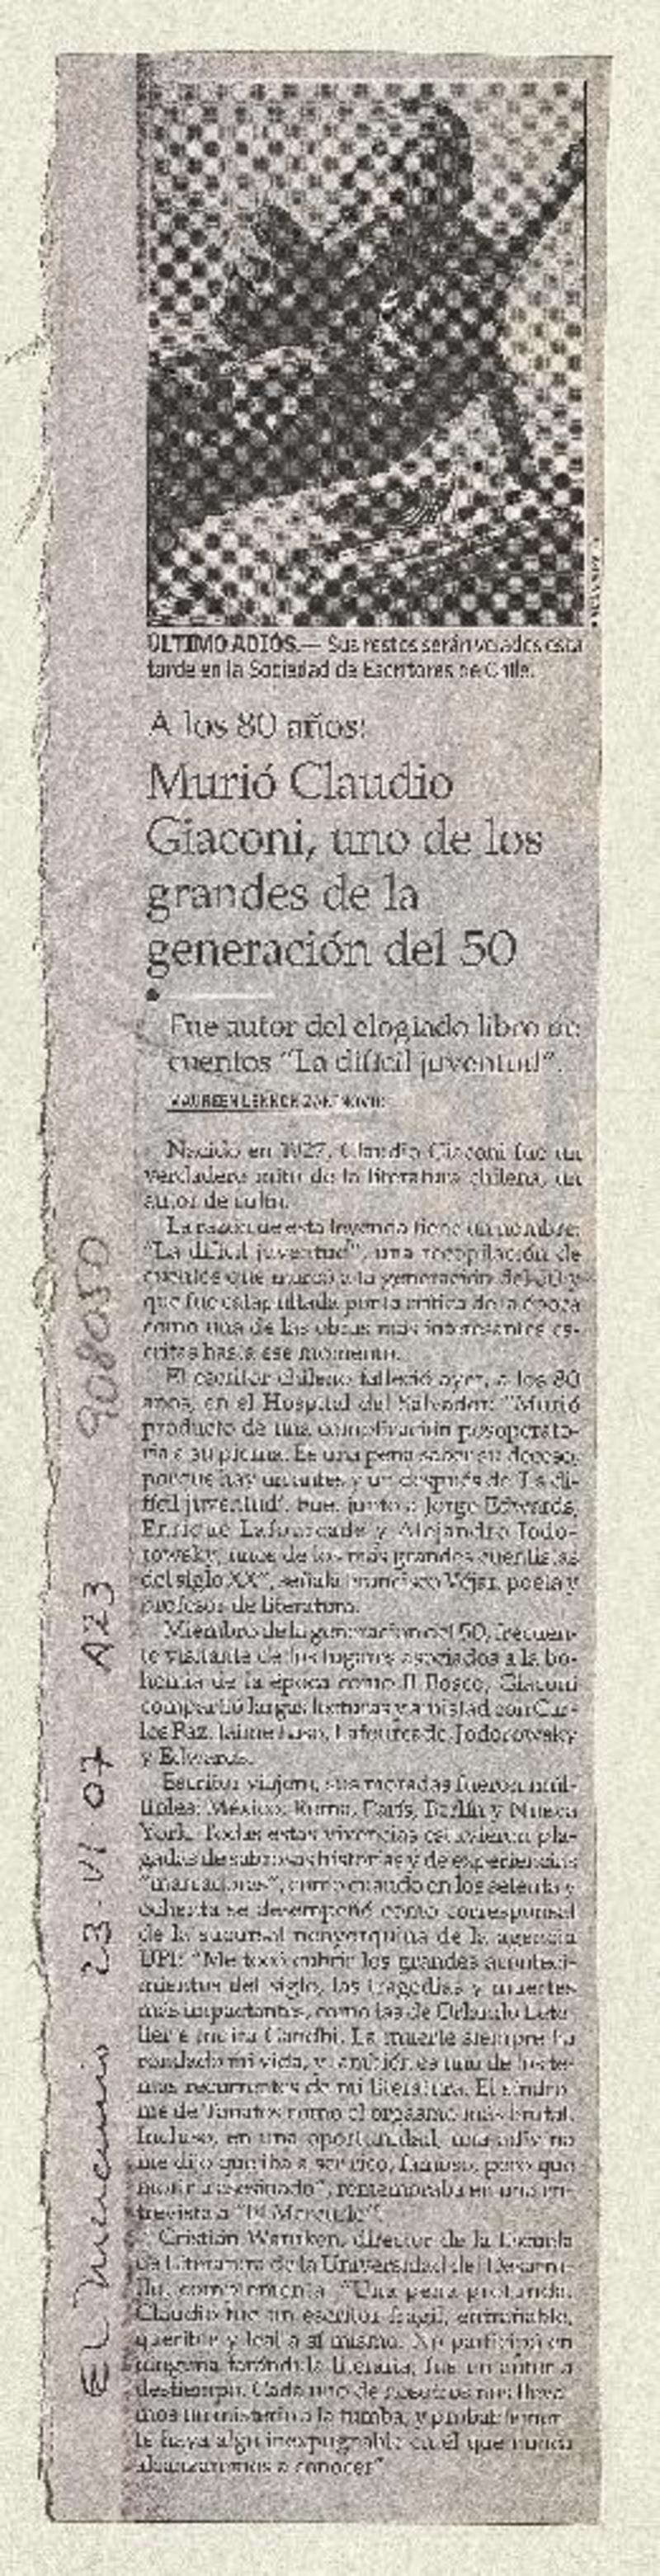 ÚLTIMO ADIÓS.— Sus restos serán velados esta
tarde en la Sociedad de Escritores de Chile.
A los 80 años:
Murió Claudio
Giaconi, uno de los
grandes de la
generación del 50
Fue autor del elogiado libro de
cuentos "La difícil juventud".
MAUREEN LENNON ZANINOVIC
Nacido en 1927, Claudio Giaconi fue un
verdadero mito de la literatura chilena, un
autor de culto.
La razón de esta leyenda tiene un nombre:
"La difícil juventud", una recopilación de
cuentos que marcó a la generación del 50 y
que fue catapultada por la crítica de la época
como una de las obras más interesantes es-
critas hasta ese momento.
El escritor chileno falleció ayer, a los 80
años, en el Hospital del Salvador: "Murió
producto de una complicación posoperato-
ria a su Es una pena saber su deceso,
porque hay un antes y un después de 'La di-
fícil juventud'. Fue, junto a Jorge Edwards,
Enrique Lafourcade y Alejandro Jodo-
rowsky, unos de los más grandes cuentistas
del siglo XX", señala Francisco Véjar, poeta y
profesor de literatura.
Miembro de la generación del 50, frecuen-
te visitante de los lugares asociados a la bo-
hemia de la época como Il Bosco, Giaconi
compartió largas lecturas y amistad con Car-
los Jaime Laso, Lafourcade, Jodorowsky
y Edwards.
Escritor viajero, sus moradas fueron múl-
tiples: México, Roma, París, Berlín y Nueva
York. Todas estas vivencias estuvieron pla-
gadas de sabrosas historias y de experiencias
"marcadoras", como cuando en los setenta y
ochenta se desempeñó como corresponsal
de la sucursal neoyorquina de la agencia
UPI: "Me tocó cubrir los grandes aconteci-
mientos del siglo, las tragedias y muertes
más impactantes, como las de Orlando Lete-
lier e Indira Gandhi. La muerte siempre ha
rondado mi vida, y también es uno de los te-
mas recurrentes de mi literatura. El síndro-
me de Tanatos como el orgasmo más brutal.
Incluso, en una oportunidad, una adivina
me dijo que iba a ser rico, famoso, pero que
moriría asesinado", rememoraba en una en-
trevista a "El Mercurio".
Cristián Warnken, director de la Escuela
de Literatura de la Universidad del Desarro-
llo, complementa: "Una pena profunda.
Claudio fue un escritor frágil, entrañable,
querible y leal a sí mismo. No participó en
ninguna farándula literaria, fue un autor a
destiempo. Cada uno de nosotros nos lleva-
mos un misterio a la tumba, y probablemen-
te haya algo inexpugnable en él que nunca
alcanzaremos a conocer".
El Mercurio 23-VI-07 A23 908050